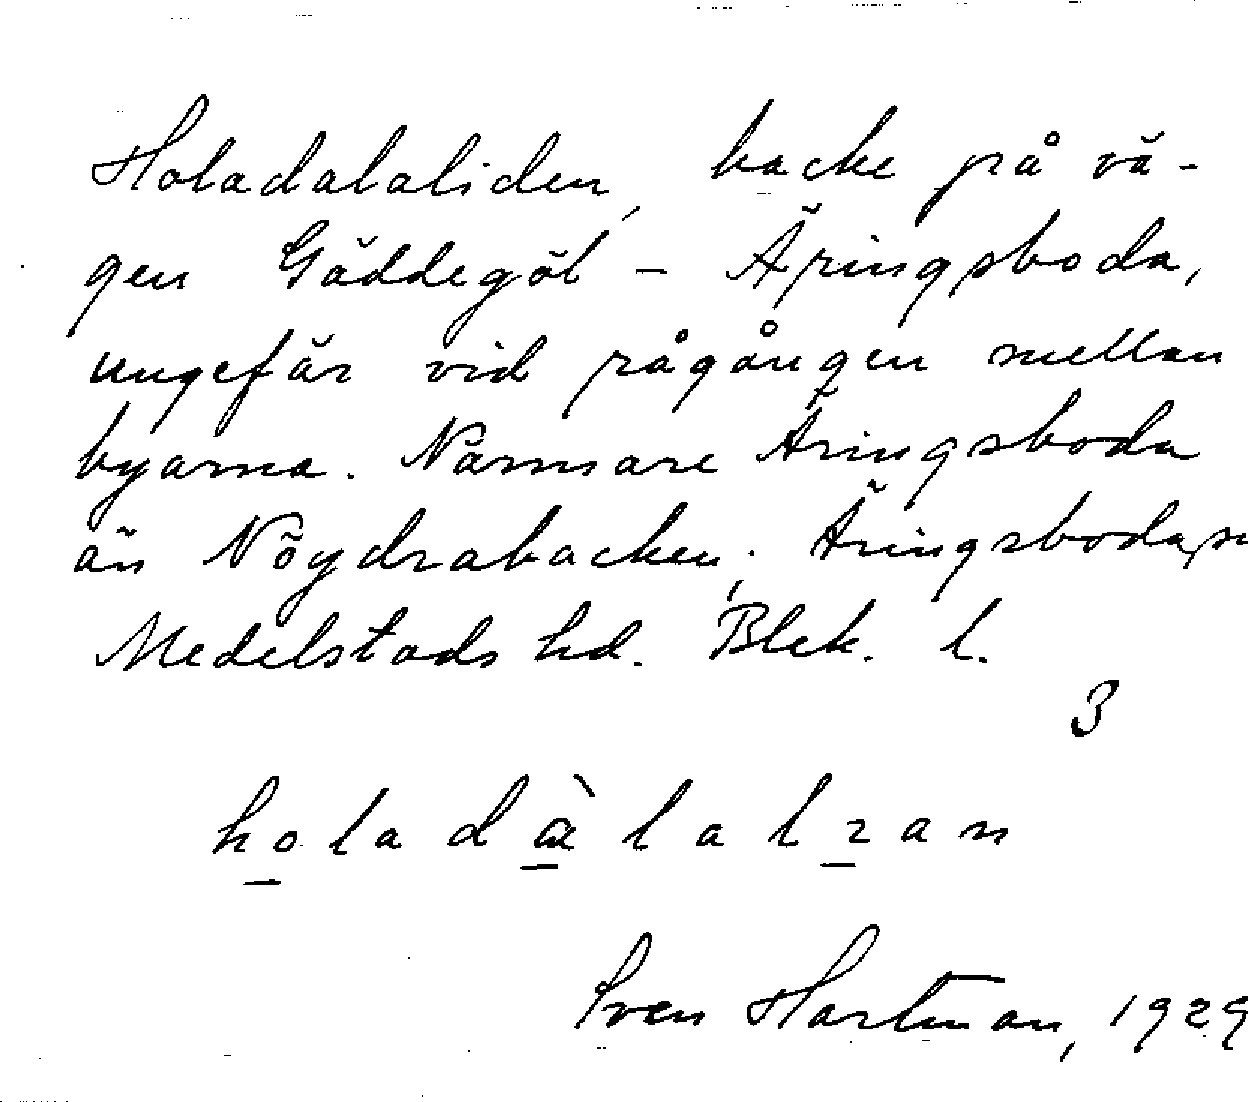 Holadalaliden, backe på vä-
gen Gäddegöl - Äringsboda,
ungefär vid rågången mellan
byarna. Närmare Äringsboda
än Nöydrabacken. Äringsboda,
Medelstads hd. Blek. l.
3
Sven Hartman, 1929